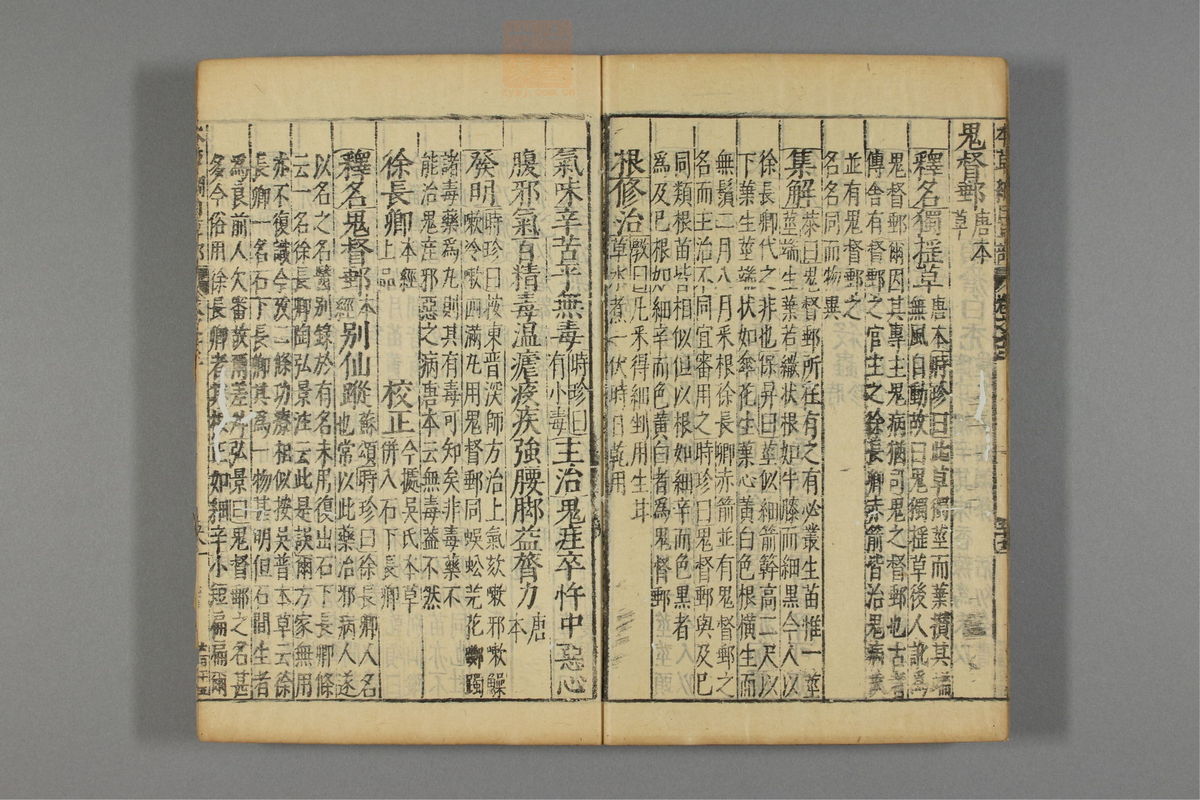 鬼督郵唐本草
釋名獨搖草唐本時珍曰此草獨莖而葉攢其端
無風自動故曰鬼獨搖草後人訛為
鬼督郵爾因其專主鬼病猶司鬼之督郵也古者
傳舍有督郵之官主之徐長卿赤箭皆治鬼病
並有鬼督郵之
名名同而物異
集解恭曰鬼督郵所在有之有必叢生苗惟一莖
莖端生葉若繖狀根如牛膝而細黑今人以
徐長卿代之非也保昇曰莖似細箭簳高二尺以
下葉生莖端狀如傘花生葉心黃白色根橫生而
無鬚二月八月采根徐長卿赤箭並有鬼督郵之
名而主治不同宜審用之時珍曰鬼督郵與及已
同類根苗皆相似但以根如細辛而色黑者
為及已根如細辛而色黃白者為鬼督郵
根修治斅曰凡采得細剉用生甘
草水煮一伏時日乾用
氣味辛苦平無毒時珍曰有小毒主治鬼疰卒忤中惡心
腹邪氣百精毒溫瘧疫疾強腰脚益膂力唐本
發明時珍曰按東晉深師方治上氣欬嗽邪嗽燥
嗽冷嗽四滿丸用鬼督郵同蜈蚣芫花躑躅
諸毒藥為丸則其有毒可知矣非毒藥不
能治鬼疰邪惡之病唐本云無毒蓋不然
徐長卿本經上品校正今據吳氏本草併入石下長卿
釋名鬼督郵本經別仙蹤蘇頌時珍曰徐長卿人名
也常以此藥治邪病人遂
以名之名醫別錄於有名未用復出石下長卿條
云一名徐長卿陶弘景注云此是誤爾方家無用
亦不復識今攷二條功療相似按吳普本草云徐
長卿一名石下長卿其為一物甚明但石間生者
為良前人欠審故爾差舛弘景曰鬼督郵之名甚
多今俗用徐長卿者其根正如細辛小短扁扁爾